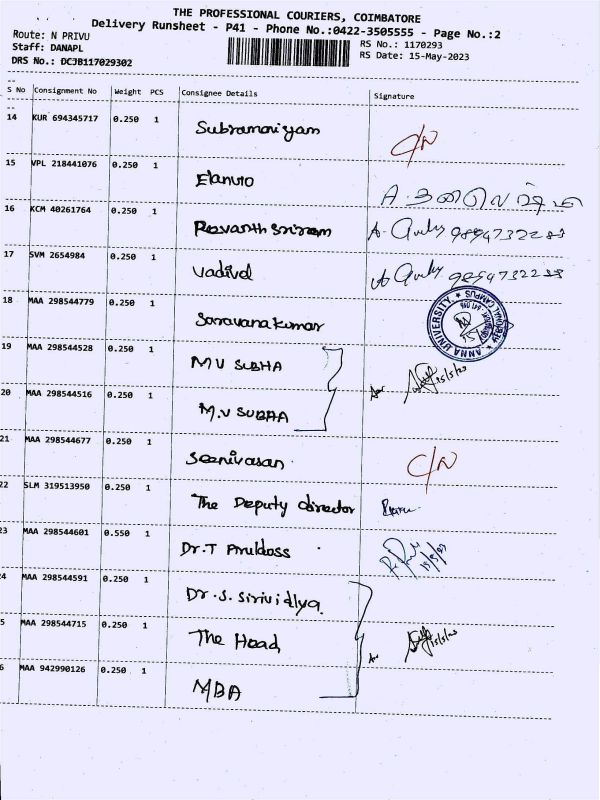 THE PROFESSIONAL COURIERS, COIMBATORE
Delivery Runsheet - P41 - Phone No.:0422-3505555 - Page No.:2
Route: N PRIVU
Staff: DANAPL
RS No.: 1170293
RS Date: 15-May-2023
DRS No.: DCJB117029302
S No Consignment No Weight PCS Consignee Details Signature
14 KUR 694345717 0.250 1 Subramaniyam C/N
15 VPL 218441076 0.250 1
16 KCM 40261764 0.250 1 9894732233
17 SVM 2654984 0.250 1 Vadivel 9894732233
18 MAA 298544779 0.250 1 Saravanakumar
ANNA UNIVERSITY REGIONAL CAMPUS
19 MAA 298544528 0.250 1 M V SUBHA
20 MAA 298544516 0.250 1 M.V SUBHA 15/5/23
21 MAA 298544677 0.250 1 Seenivasan C/N
22 SLM 319513950 0.250 1 The Deputy director
23 MAA 298544601 0.550 1 Dr.T Aruldoss 15/5/23
24 MAA 298544591 0.250 1 Dr.S.Sirividhya.
5 MAA 298544715 0.250 1 The Head 15/5/23
6 MAA 942990126 0.250 1 MBA